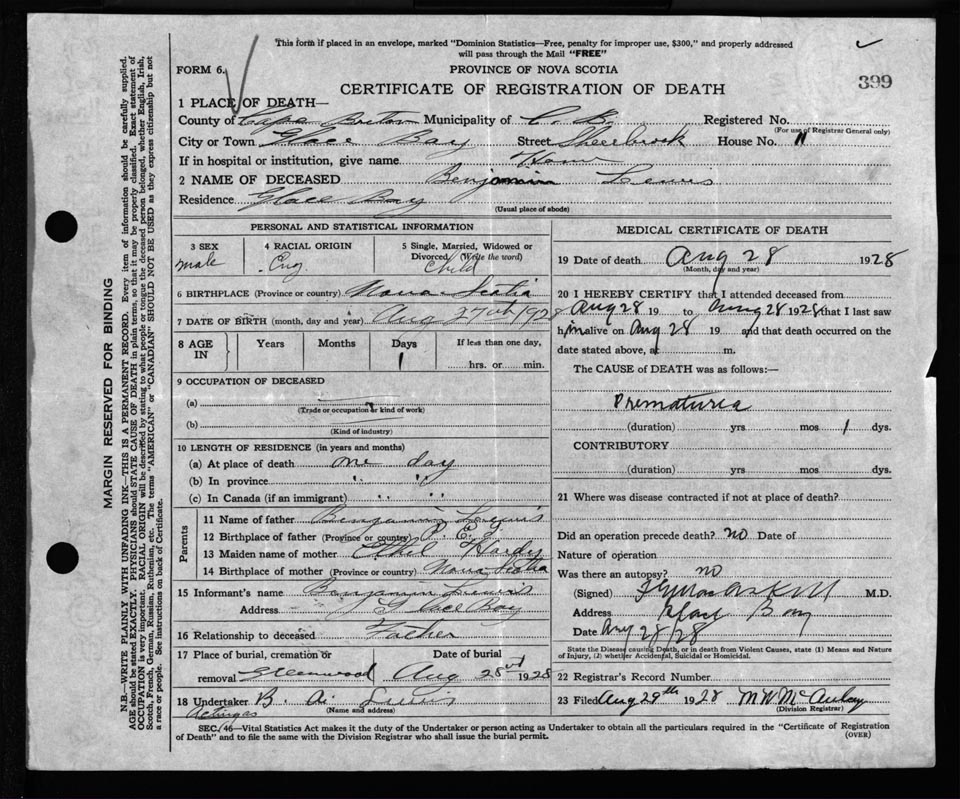 This form if placed in an envelope, marked "Dominion Statistics—Free, penalty for improper use, $300," and properly addressed
will pass through the Mail "FREE"
FORM 6. PROVINCE OF NOVA SCOTIA
399
CERTIFICATE OF REGISTRATION OF DEATH
1 PLACE OF DEATH—
County of Cape Breton Municipality of C. B. Registered No.
(For use of Registrar General only)
City or Town Glace Bay Street Sheerbrook House No. 11
If in hospital or institution, give name Home
2 NAME OF DECEASED Benjamin Lewis
Residence Glace Bay
(Usual place of abode)
PERSONAL AND STATISTICAL INFORMATION
3 SEX 4 RACIAL ORIGIN 5 Single, Married, Widowed or
Divorced (Write the word)
male Eng. Child
6 BIRTHPLACE (Province or country) Nova Scotia
7 DATE OF BIRTH (month, day and year) Aug 27th 1928
8 AGE IN Years Months Days If less than one day,
1 hrs. or min.
9 OCCUPATION OF DECEASED
(a)
(Trade or occupation or kind of work)
(b)
(Kind of industry)
10 LENGTH OF RESIDENCE (in years and months)
(a) At place of death one day
(b) In province " "
(c) In Canada (if an immigrant) " "
Parents
11 Name of father Benjamin Lewis
12 Birthplace of father (Province or country) P. E. I
13 Maiden name of mother Ethel Hardy
14 Birthplace of mother (Province or country) Nova Scotia
15 Informant's name Benjamin Lewis
Address Glace Bay
16 Relationship to deceased Father
17 Place of burial, cremation or Date of burial
removal Greenwood Aug 28 1928
18 Undertaker B. Lewis
(Name and address)
MEDICAL CERTIFICATE OF DEATH
19 Date of death Aug 28 1928
(Month, day and year)
20 I HEREBY CERTIFY that I attended deceased from
Aug 28 19 to Aug 28 1928 that I last saw
him alive on Aug 28 19 and that death occurred on the
date stated above, at m.
The CAUSE of DEATH was as follows:—
Prematurea
(duration) yrs mos 1 dys.
CONTRIBUTORY
(duration) yrs mos dys.
21 Where was disease contracted if not at place of death?
Did an operation precede death? no Date of
Nature of operation
Was there an autopsy? no
(Signed) M.D.
Address Glace Bay
Date Aug 28/28
State the Disease causing Death, or in death from Violent Causes, state (1) Means and Nature
of Injury, (2) whether Accidental, Suicidal or Homicidal.
22 Registrar's Record Number
23 Filed Aug 29th 1928 M McAulay
(Division Registrar)
SEC. 46—Vital Statistics Act makes it the duty of the Undertaker or person acting as Undertaker to obtain all the particulars required in the "Certificate of Registration
of Death" and to file the same with the Division Registrar who shall issue the burial permit.
(OVER)
MARGIN RESERVED FOR BINDING
N.B.—WRITE PLAINLY WITH UNFADING INK—THIS IS A PERMANENT RECORD. Every item of information should be carefully supplied.
AGE should be stated EXACTLY. PHYSICIANS should STATE CAUSE OF DEATH in plain terms, so that it may be properly classified. Exact statement of
OCCUPATION is very important. RACIAL ORIGIN will be described by stating to what people or tongue the deceased person belonged, whether English, Irish,
Scotch, French, German, Russian, Ruthenian, etc. The terms "AMERICAN" or "CANADIAN" SHOULD NOT BE USED as they express citizenship but not
a race or people. See instructions on back of Certificate.